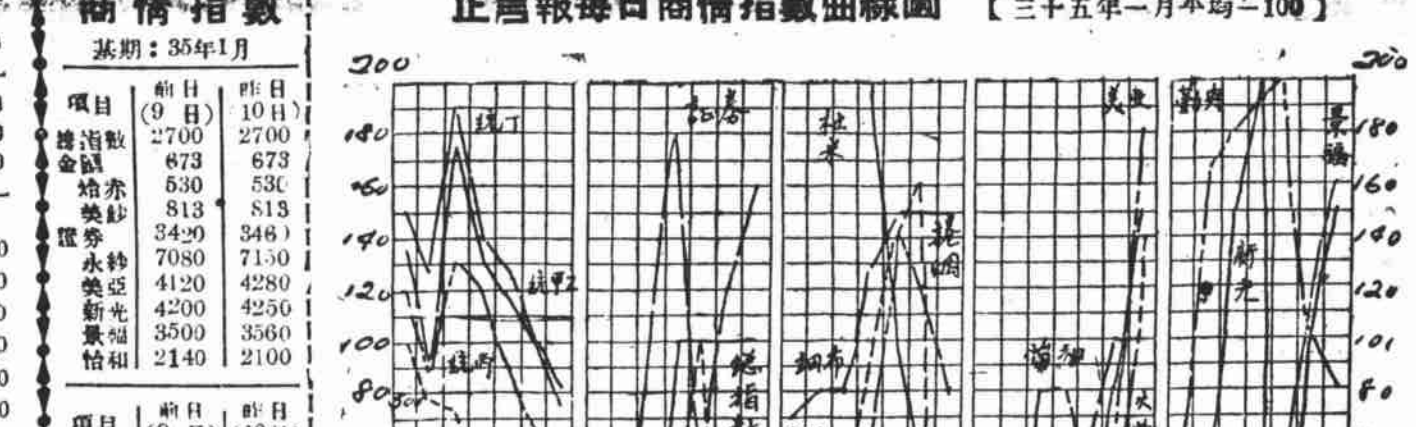 商情指數
基期：35年1月
項目 前日(9日) 昨日10日)
總指數 2700 2700
673 673
焓赤 530 530
美鈔 813 813
證券 3420 346
永紗 7080 7150
美亞 4120 4280
新光 4200 4250
景福 3500 3560
怡和 2140 2100
項目 前日 昨日
正言報每日商情指數曲線圖【三十五年一月平均＝100】
200
180
160
140
120
100
80
統丁
統丙
証券
總指
粳米
細布
美亞
勤興
景福
新光
200
180
160
140
120
101
80